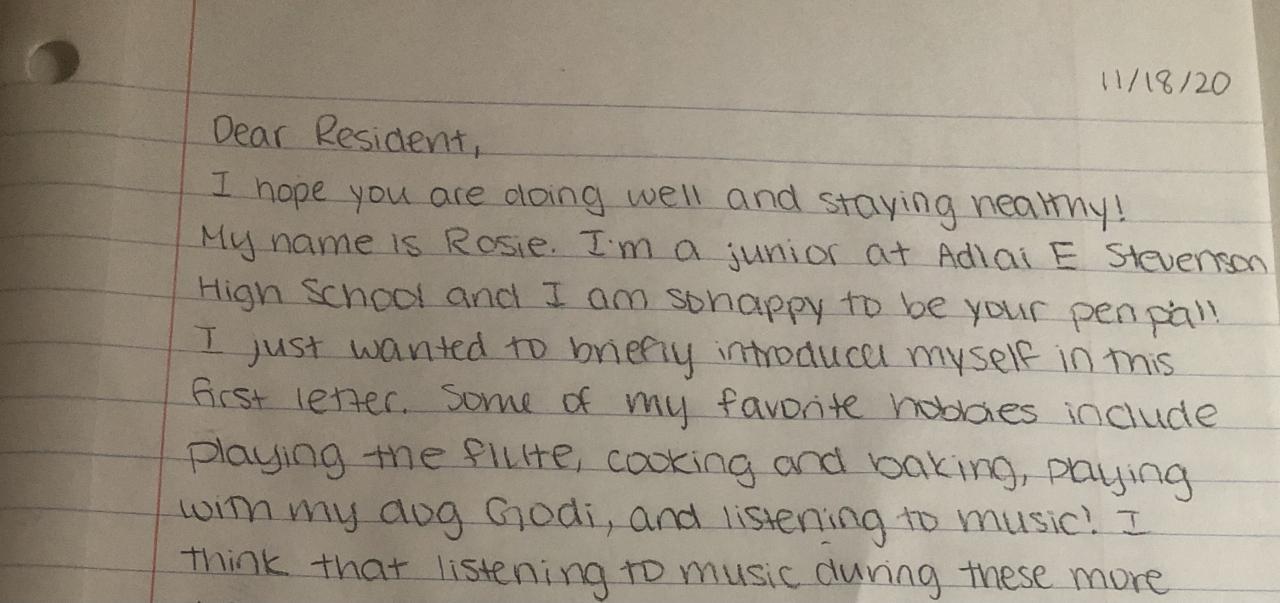 11/18/20
Dear Resident,
I hope you are doing well and staying healthy!
My name is Rosie. I'm a junior at Adlai E Stevenson
High School and I am so happy to be your pen pal!
I just wanted to briefly introduce myself in this
first letter. Some of my favorite hobbies include
playing the flute, cooking and baking, playing
with my dog Godi, and listening to music! I
think that listening to music during these more